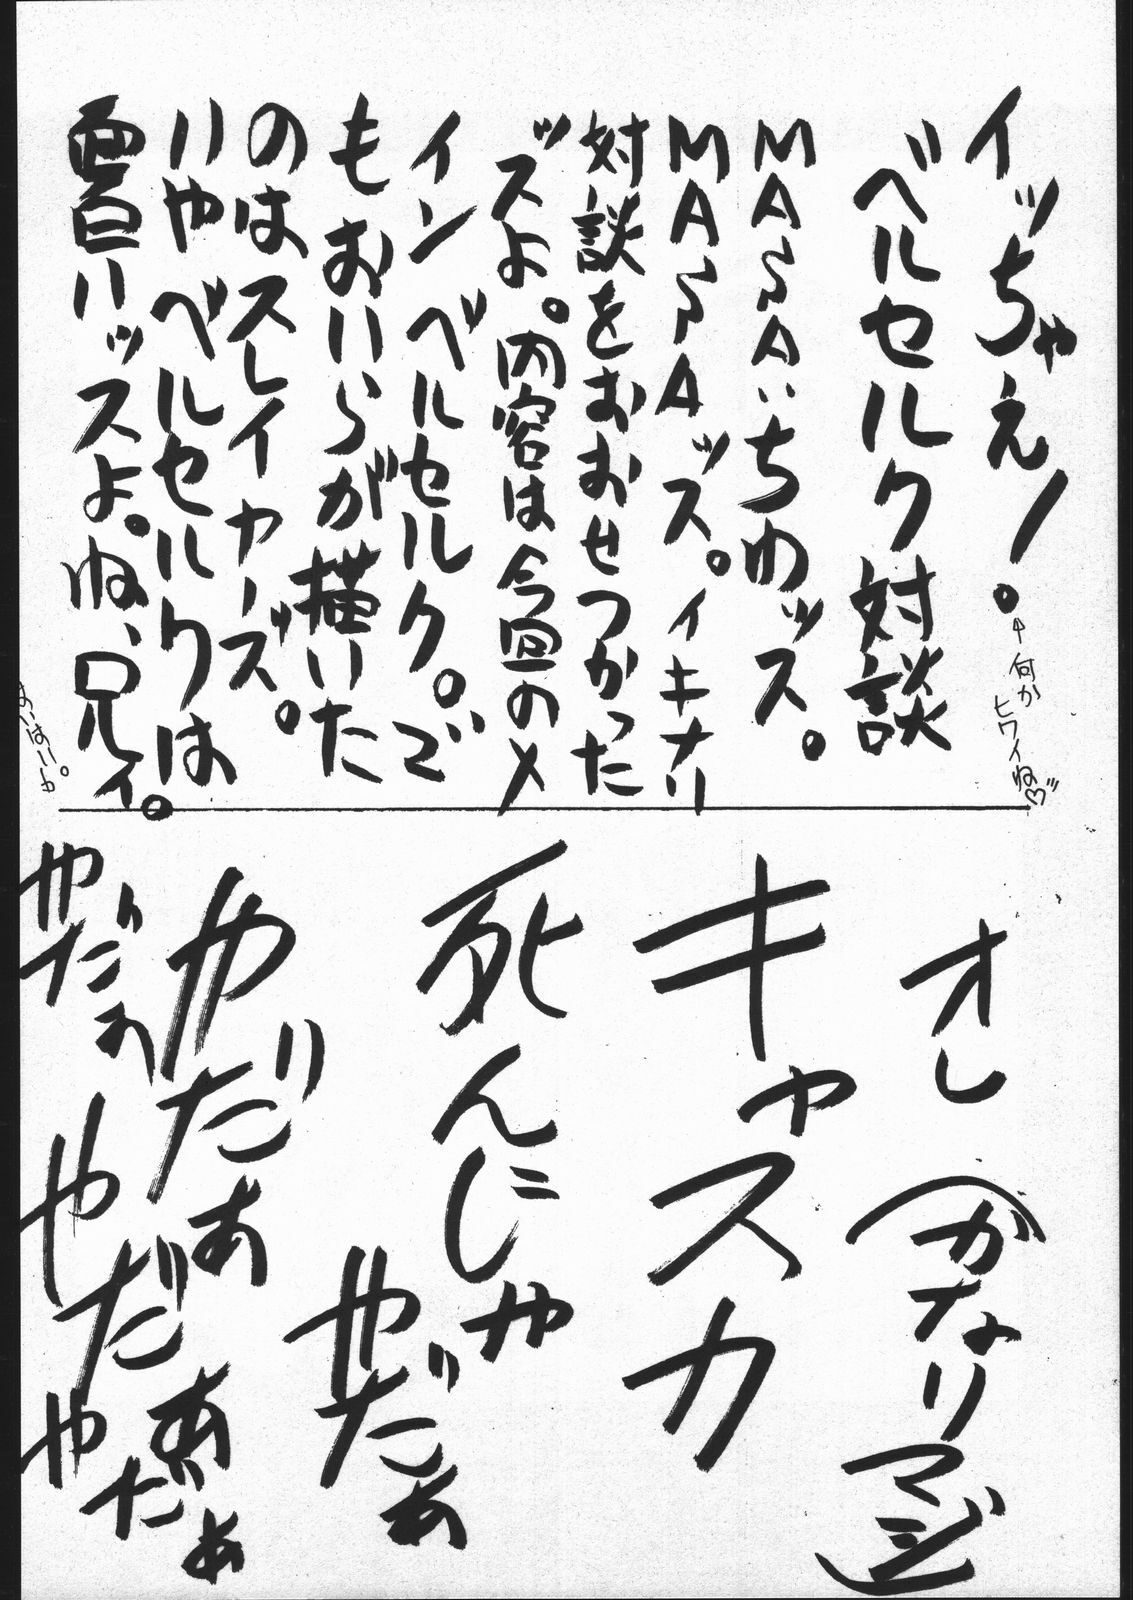 イッちゃえ!。
←何か
ヒワイね♡
ベルセルク対談
MASAいちわッス。
MASAッス。イキナリ
対談をおおせつかった
ッスよ。内容は今回のメ
インベルセルク。で
もおいらが描いた
のはスレイヤーズ。
いやベルセルクは
買いッスよ。ね、兄ィ。
オレ
(かなりマジ
キャスカ
死んじゃ
やだぁ
やだぁ
やだあ
やだぁ
やだぁ